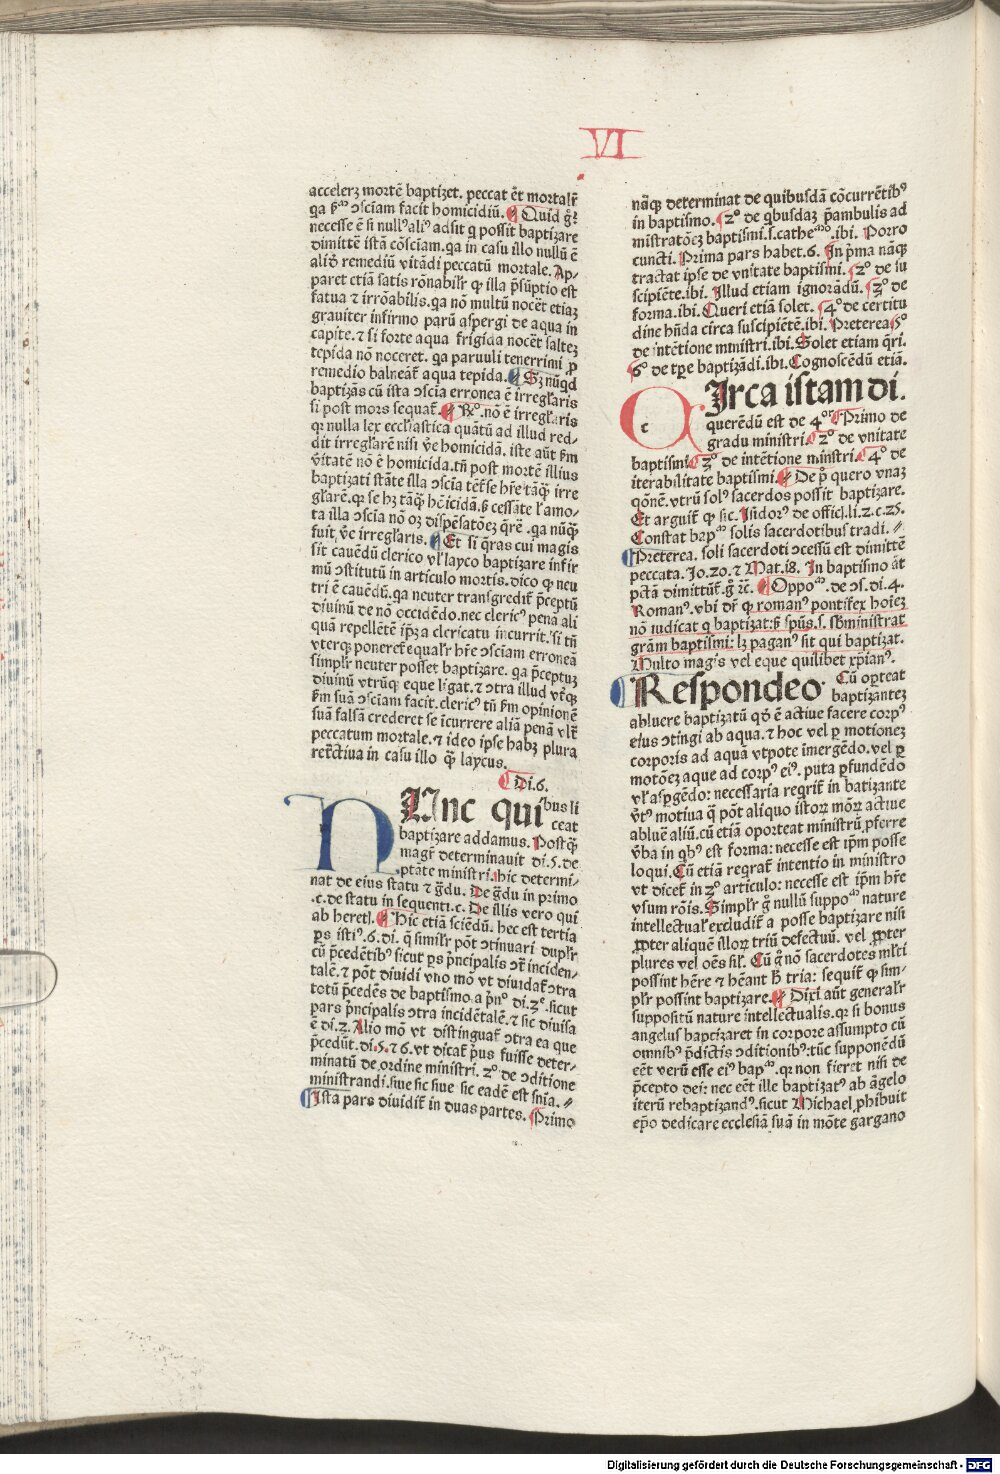 VI
accelerꝫ mortē baptizet. peccat eͭt mortalr̄
qa ꝯ̄ ɔsciam facit homicidiū. Quid gͦ:
necesse ē si nullꝰ aliꝰ adsit q possit baptizare
dimittē istā cōsciam. qa in casu illo nullū ē
aliqͦ remediū vitādi peccatū mortale. Ap⸗
paret etiā satis rōnabilr̄ ꝙ illa p̄sūptio est
fatua ⁊ irrōabilis. qa nō multū nocēt etiaꝫ
grauiter infirmo parū aspergi de aqua in
capite. ⁊ si forte aqua frigida nocēt salteꝫ
tepida nō noceret. qa paruuli tenerrimi ꝓ
remedio balneāt̄ aqua tepida. Sꝫ nūqd
baptizās cū ista ɔscia erronea ē irregl̄aris
si post mors sequat̄. Rͦ. nō ē irregl̄aris
qꝛ nulla lex ecclesiastica quātū ad illud red⸗
dit irregl̄arē nisi v̄e homicidā. iste aūt ẜm
v̄itatē nō ē homicida. tn̄ post mortē illius
baptizati stāte illa ɔscia tēt̄ se hr̄e tāꝙ̄ irre
gl̄arē. ꝙ se hꝫ tāꝙ̄ hōicidā. ꝯ cessāte l̓ amo⸗
ta illa ɔscia nō oꝫ dispēsatōeꝫ q̄rē. qa nūꝙ̄
fuit v̄e irregl̄aris. Et si q̄ras cui magis
sit cauēdū clerico vl̓ layco baptizare infir
mū ɔstitutū in articulo mortis. dico ꝙ neu
tri ē cauēdū. qa neuter transgredit̄ p̄ceptū
diuinū de nō occidēdo. nec clericꝰ penā ali
quā repellētē ip̄ꝫ a clericatu incurrit. si tn̄
vterqꝫ poneret̄ equalr̄ hr̄e ɔsciam erroneā
simplr̄ neuter posset baptizare. qa p̄ceptuꝫ
diuinū vtrūqꝫ eque ligat. ⁊ ɔtra illud vt̄qꝫ
ẜm suā ɔsciam facit. clericꝰ tn̄ ẜm opinionē
suā falsā crederet se īcurrere aliā penā vl̓tͣ
peccatum mortale. ⁊ ideo ipse habꝫ plura
retͣctiua in casu illo ꝙ̄ laycus.
Di. 6.
NUnc qui
bus li
ceat
baptizare addamus. Postꝙ̄
magr̄ determinauit di. 5. de
ptāte ministri. hic determi⸗
nat de eius statu ⁊ gͣdu. De gͣdu in primo
.c. de statu in sequenti. c. De illis vero qui
ab hereti. Hic etiā sciēdū. hec est tertia
ꝑs istiꝰ. 6. di. q̄ similr̄ pōt ɔtinuari duplr̄
cū p̄cedētibꝰ sicut ꝑs p̄ncipalis ɔtͣ inciden⸗
talē. ⁊ pōt diuidi vno mō vt diuidat̄ ɔtra
totū p̄cedēs de baptismo. a p̄nͦ di. 2ͤ. sicut
pars p̄ncipalis ɔtra incidētalē. ⁊ sic diuisa
ē di. 2. Alio mō vt distinguat̄ ɔtra ea que
p̄cedūt. di. 5. ⁊ 6. vt dicat̄ p̄us fuisse deter⸗
minatū de ordine ministri. 2ͦ. de ɔditione
ministrandi. siue sic siue sic eadē est sn̄ia.
Ista pars diuidit̄ in duas partes. Primo
nāqꝫ determinat de quibusdā cōcurrētibꝰ
in baptismo. 2ͦ de qͥbusdaꝫ p̄ambulis ad
mistratōeꝫ baptismi. s. catheͦ͠. ibi. Porro
cuncti. Prima pars habet. 6. In p̄ma nāqꝫ
tractat ipse de vnitate baptismi. 2ͦ de su
scipiēte. ibi. Illud etiam ignorādū. 3ͦ de
forma. ibi. Queri etiā solet. 4ͦ de certitu
dine hn̄da circa suscipiētē. ibi. Preterea 5ͦ
de intētione ministri. ibi. Solet etiam q̄ri.
6ͦ de tꝑe baptizādi. ibi. Cognoscēdū etiā.
CIrca istam di.
querēdū est de 4ͦʳ Primo de
gradu ministri 2ͦ de vnitate
baptismi 3ͦ de intētione ministri. 4ͦ de
iterabilitate baptismi. De pͦ quero vnaꝫ
qōnē. vtrū solꝰ sacerdos possit baptizare.
Et arguit̄ ꝙ sic. Isidorꝰ de offici. li. 2. c. 25.
Constat bapͫͣ solis sacerdotibus tradi.
Preterea. soli sacerdoti ɔcessū est dimittē
peccata. Jo. 20. ⁊ Mat. 18. In baptismo āt
pctā dimittūt̄. gͦ ⁊c. Oppoᵐ. de ɔs. di. 4.
Romanꝰ. vbi dr̄ ꝙ romanꝰ pontifex hoieꝫ
nō iudicat q baptizat: ꝯ sp̄us. s. sbministrat
grām baptismi: lꝫ paganꝰ sit qui baptizat.
Multo magis vel eque quilibet xp̄ianꝰ.
Respondeo.
Cū oꝑteat
baptizanteꝫ
abluere baptizatū qd ē actiue facere corpꝰ
eius ɔtingi ab aqua. ⁊ hoc vel ꝑ motioneꝫ
corporis ad aquā vtpote īmergēdo. vel ꝑ
motōeꝫ aque ad corpꝰ eiꝰ. puta ꝑfundēdo
vl̓ aspgēdo: necessaria reqrit̄ in batizante
v̓tꝰ motiua q̄ pōt aliquo istoꝝ moꝝ actiue
abluē aliū. cū etiā oporteat ministrū ꝓferre
v̓ba in qͥbꝰ est forma: necesse est ip̄m posse
loqui. Cū etiā reqrat̄ intentio in ministro
vt dicet̄ in 2ͦ articulo: necesse est ip̄m hr̄e
vsum rōis. Simplr̄ gͦ nullū suppoᵐ nature
intellectual̓ excludit̄ a posse baptizare nisi
ꝓpter aliquē illoꝝ triū defectuū. vel ꝓpter
plures vel oēs sil̓. Cū gͦ nō sacerdotes ml̓ti
possint hēre ⁊ hēant h̄ tria: sequit̄ ꝙ sim⸗
plr̄ possint baptizare. Dixi aūt generalr̄
suppositū nature intellectualis. qꝛ si bonus
angelus baptizaret in corpore assumpto cū
omnibꝰ p̄dictis ɔditionibꝰ: tūc supponēdū
eēt verū esse eiꝰ bapᵐ. qꝛ non fieret nisi de
p̄cepto dei: nec eēt ille baptizatꝰ ab āgelo
iterū rebaptizandꝰ. sicut Michael ꝓhibuit
ep̄o dedicare ecclesiā suā in mōte gargano
Digitalisierung gefördert durch die Deutsche Forschungsgemeinschaft - DFG